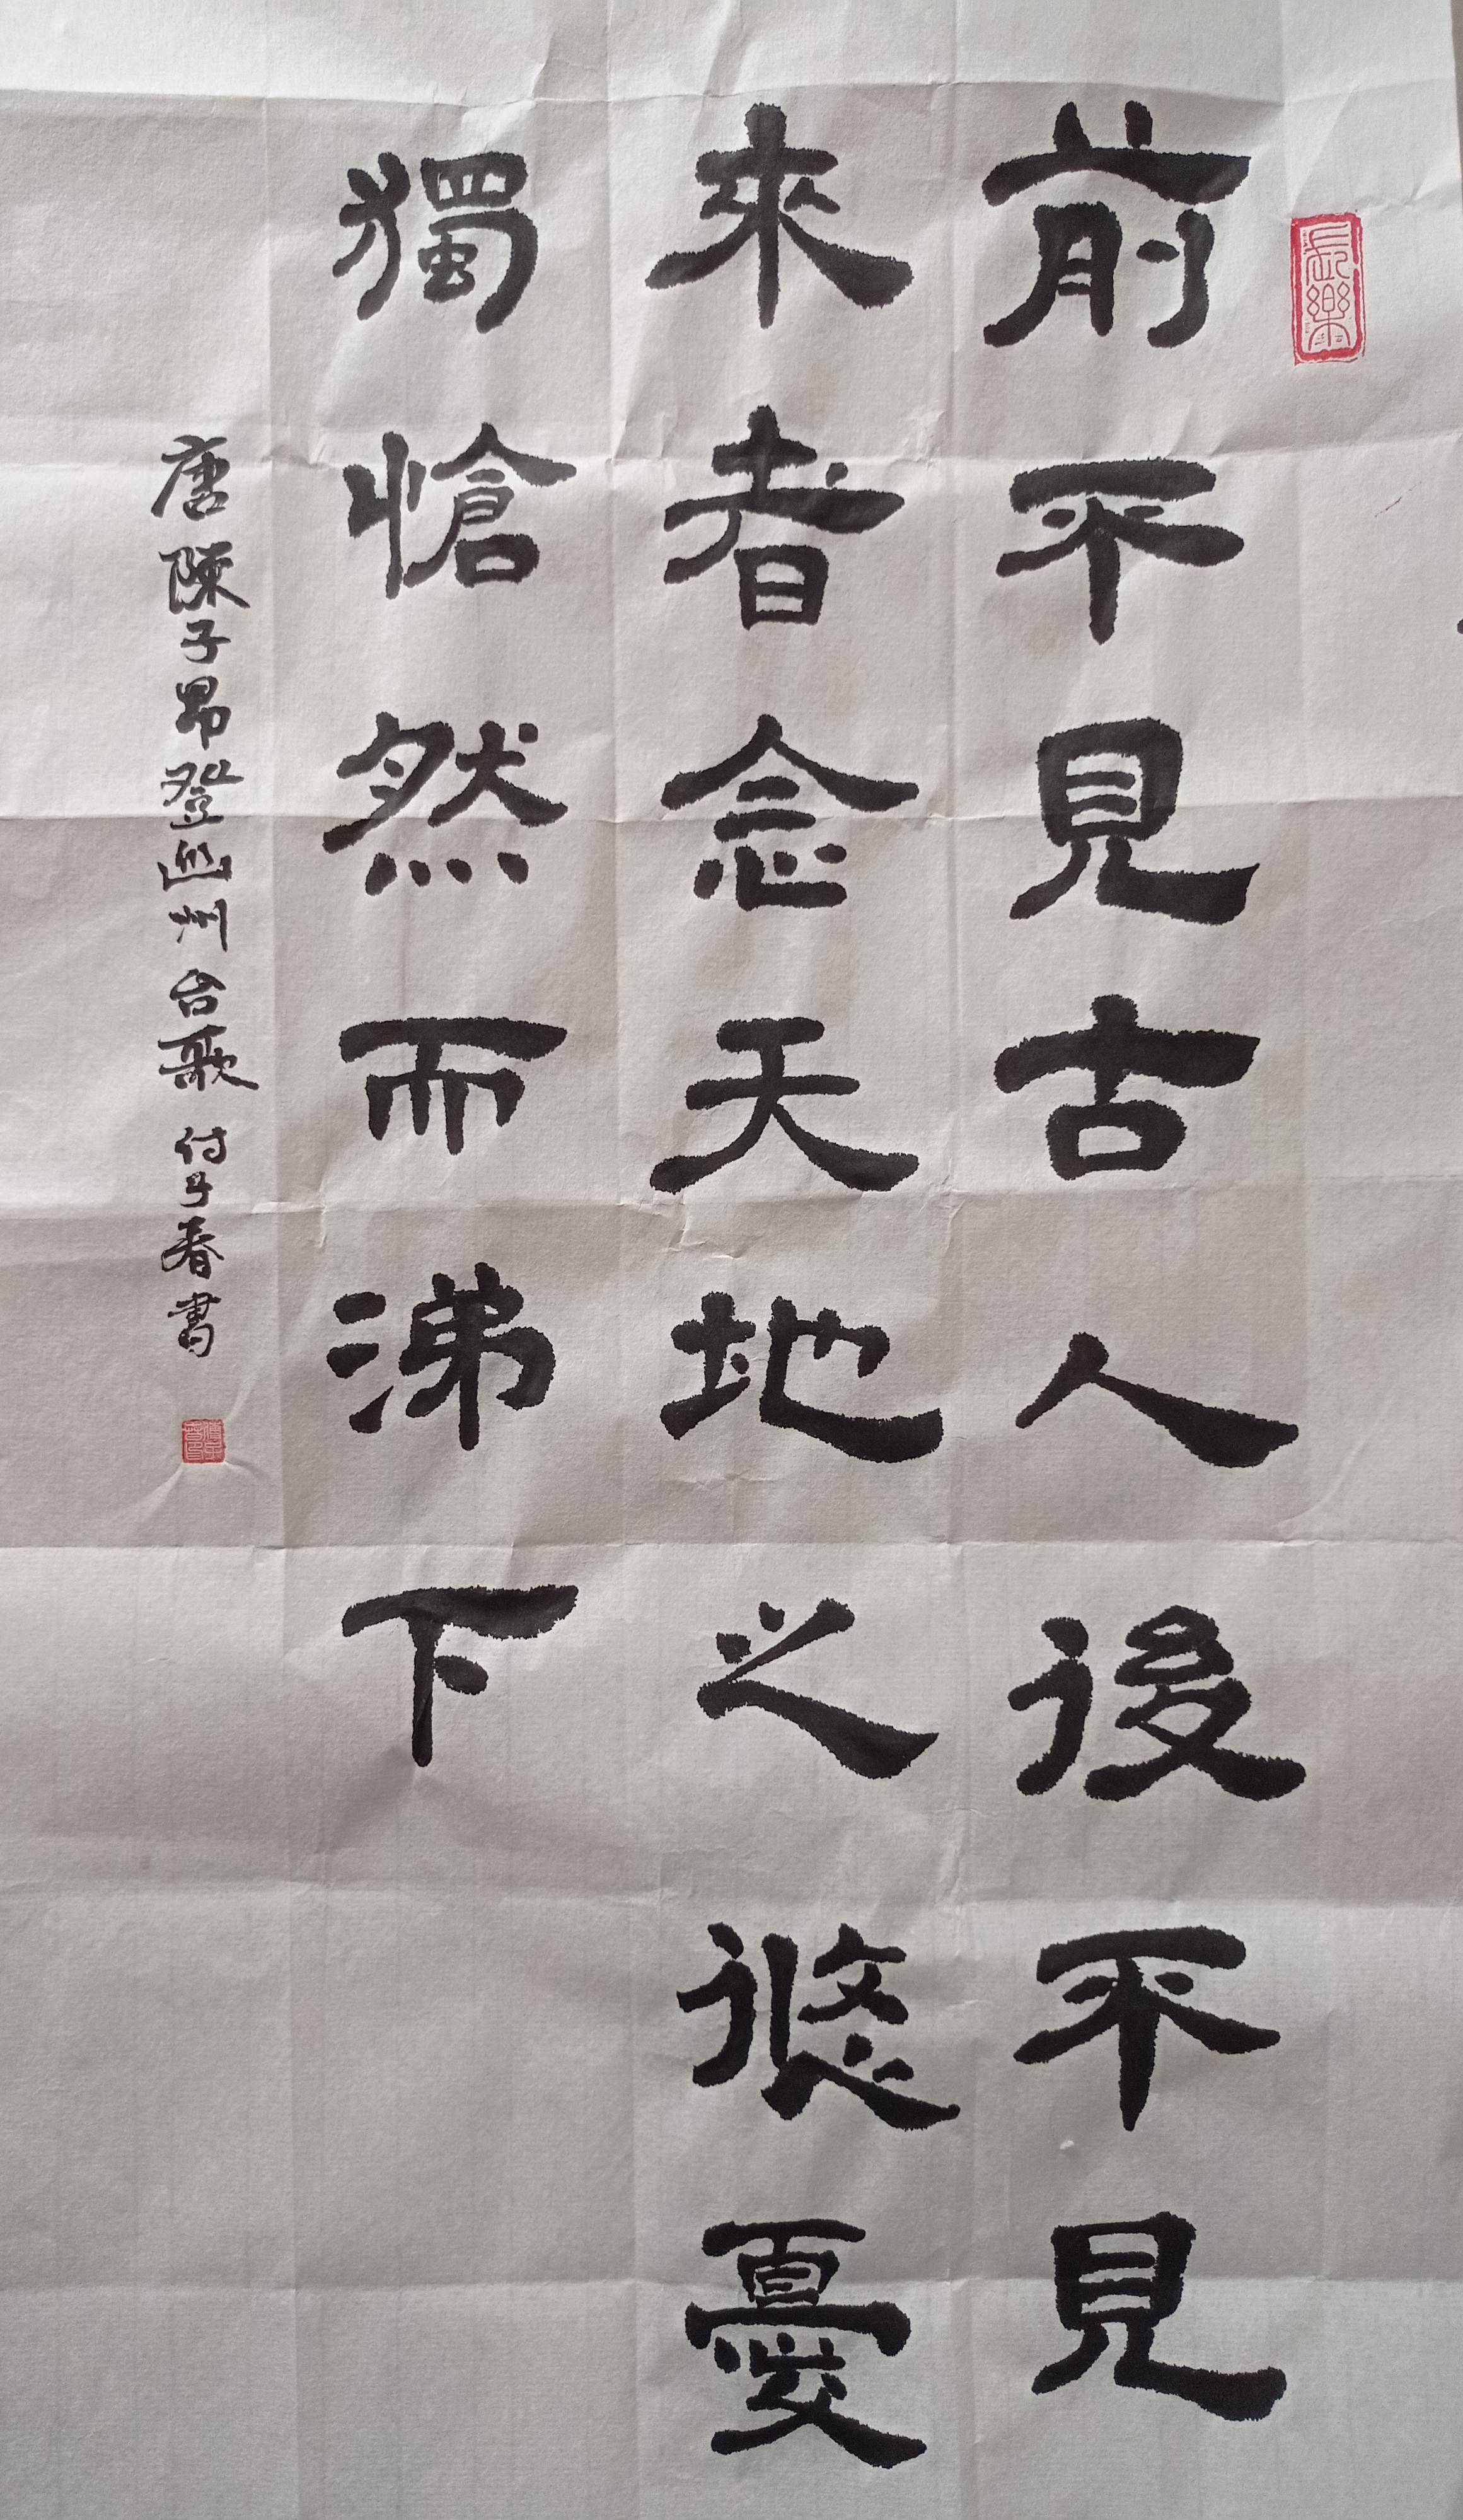 長樂
前不見古人後不見
來者念天地之悠憂
獨愴然而涕下
唐陳子昂登幽州台歌 付子春書